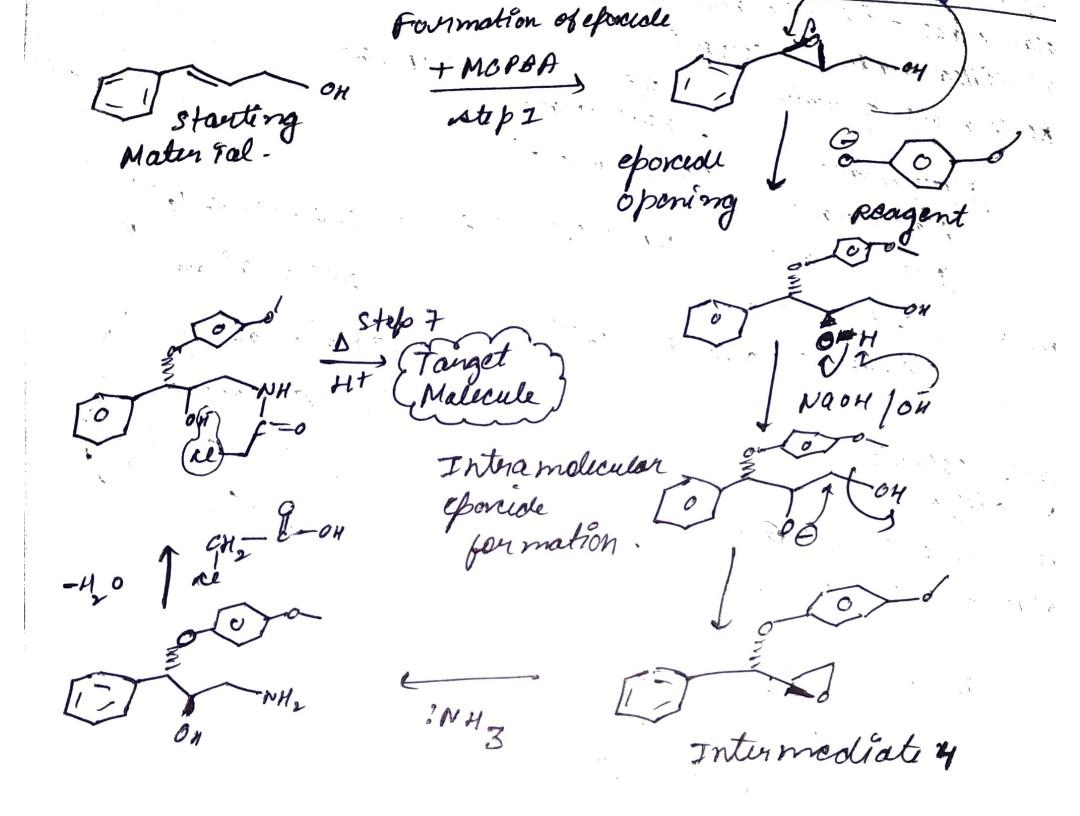 Formation of epoxide
+ MCPBA
step 1
OH
Starting
Material.
O
OH
epoxide
opening
⊖
O
O
Reagent
O
O
OH
O-H
NaOH / OH
Step 7
Δ
H+
Target
Malecule
O
O
NH
OH
C=O
Cl
O
O
OH
O⊖
Intramolecular
epoxide
formation.
-H2O
CH2-C-OH
O
Cl
O
O
NH2
OH
:NH3
O
O
O
Intermediate 4